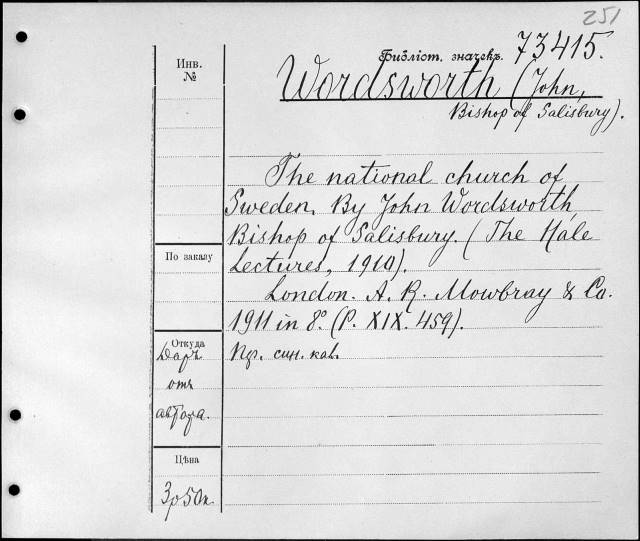 251
Инв.
№
Библіот. значекъ. 73415.
Wordsworth (John,
Bishop of Salisbury).
The national church of
Sweden. By John Wordsworth
Bishop of Salisbury. (The Hále
Lectures, 1910).
London. A. R. Mowbray & Co.
1911 in 8º. (P. XIX. 459).
По заказу
Откуда
Даръ
отъ
автора.
Пр. син. кав.
Цѣна
3р50к.